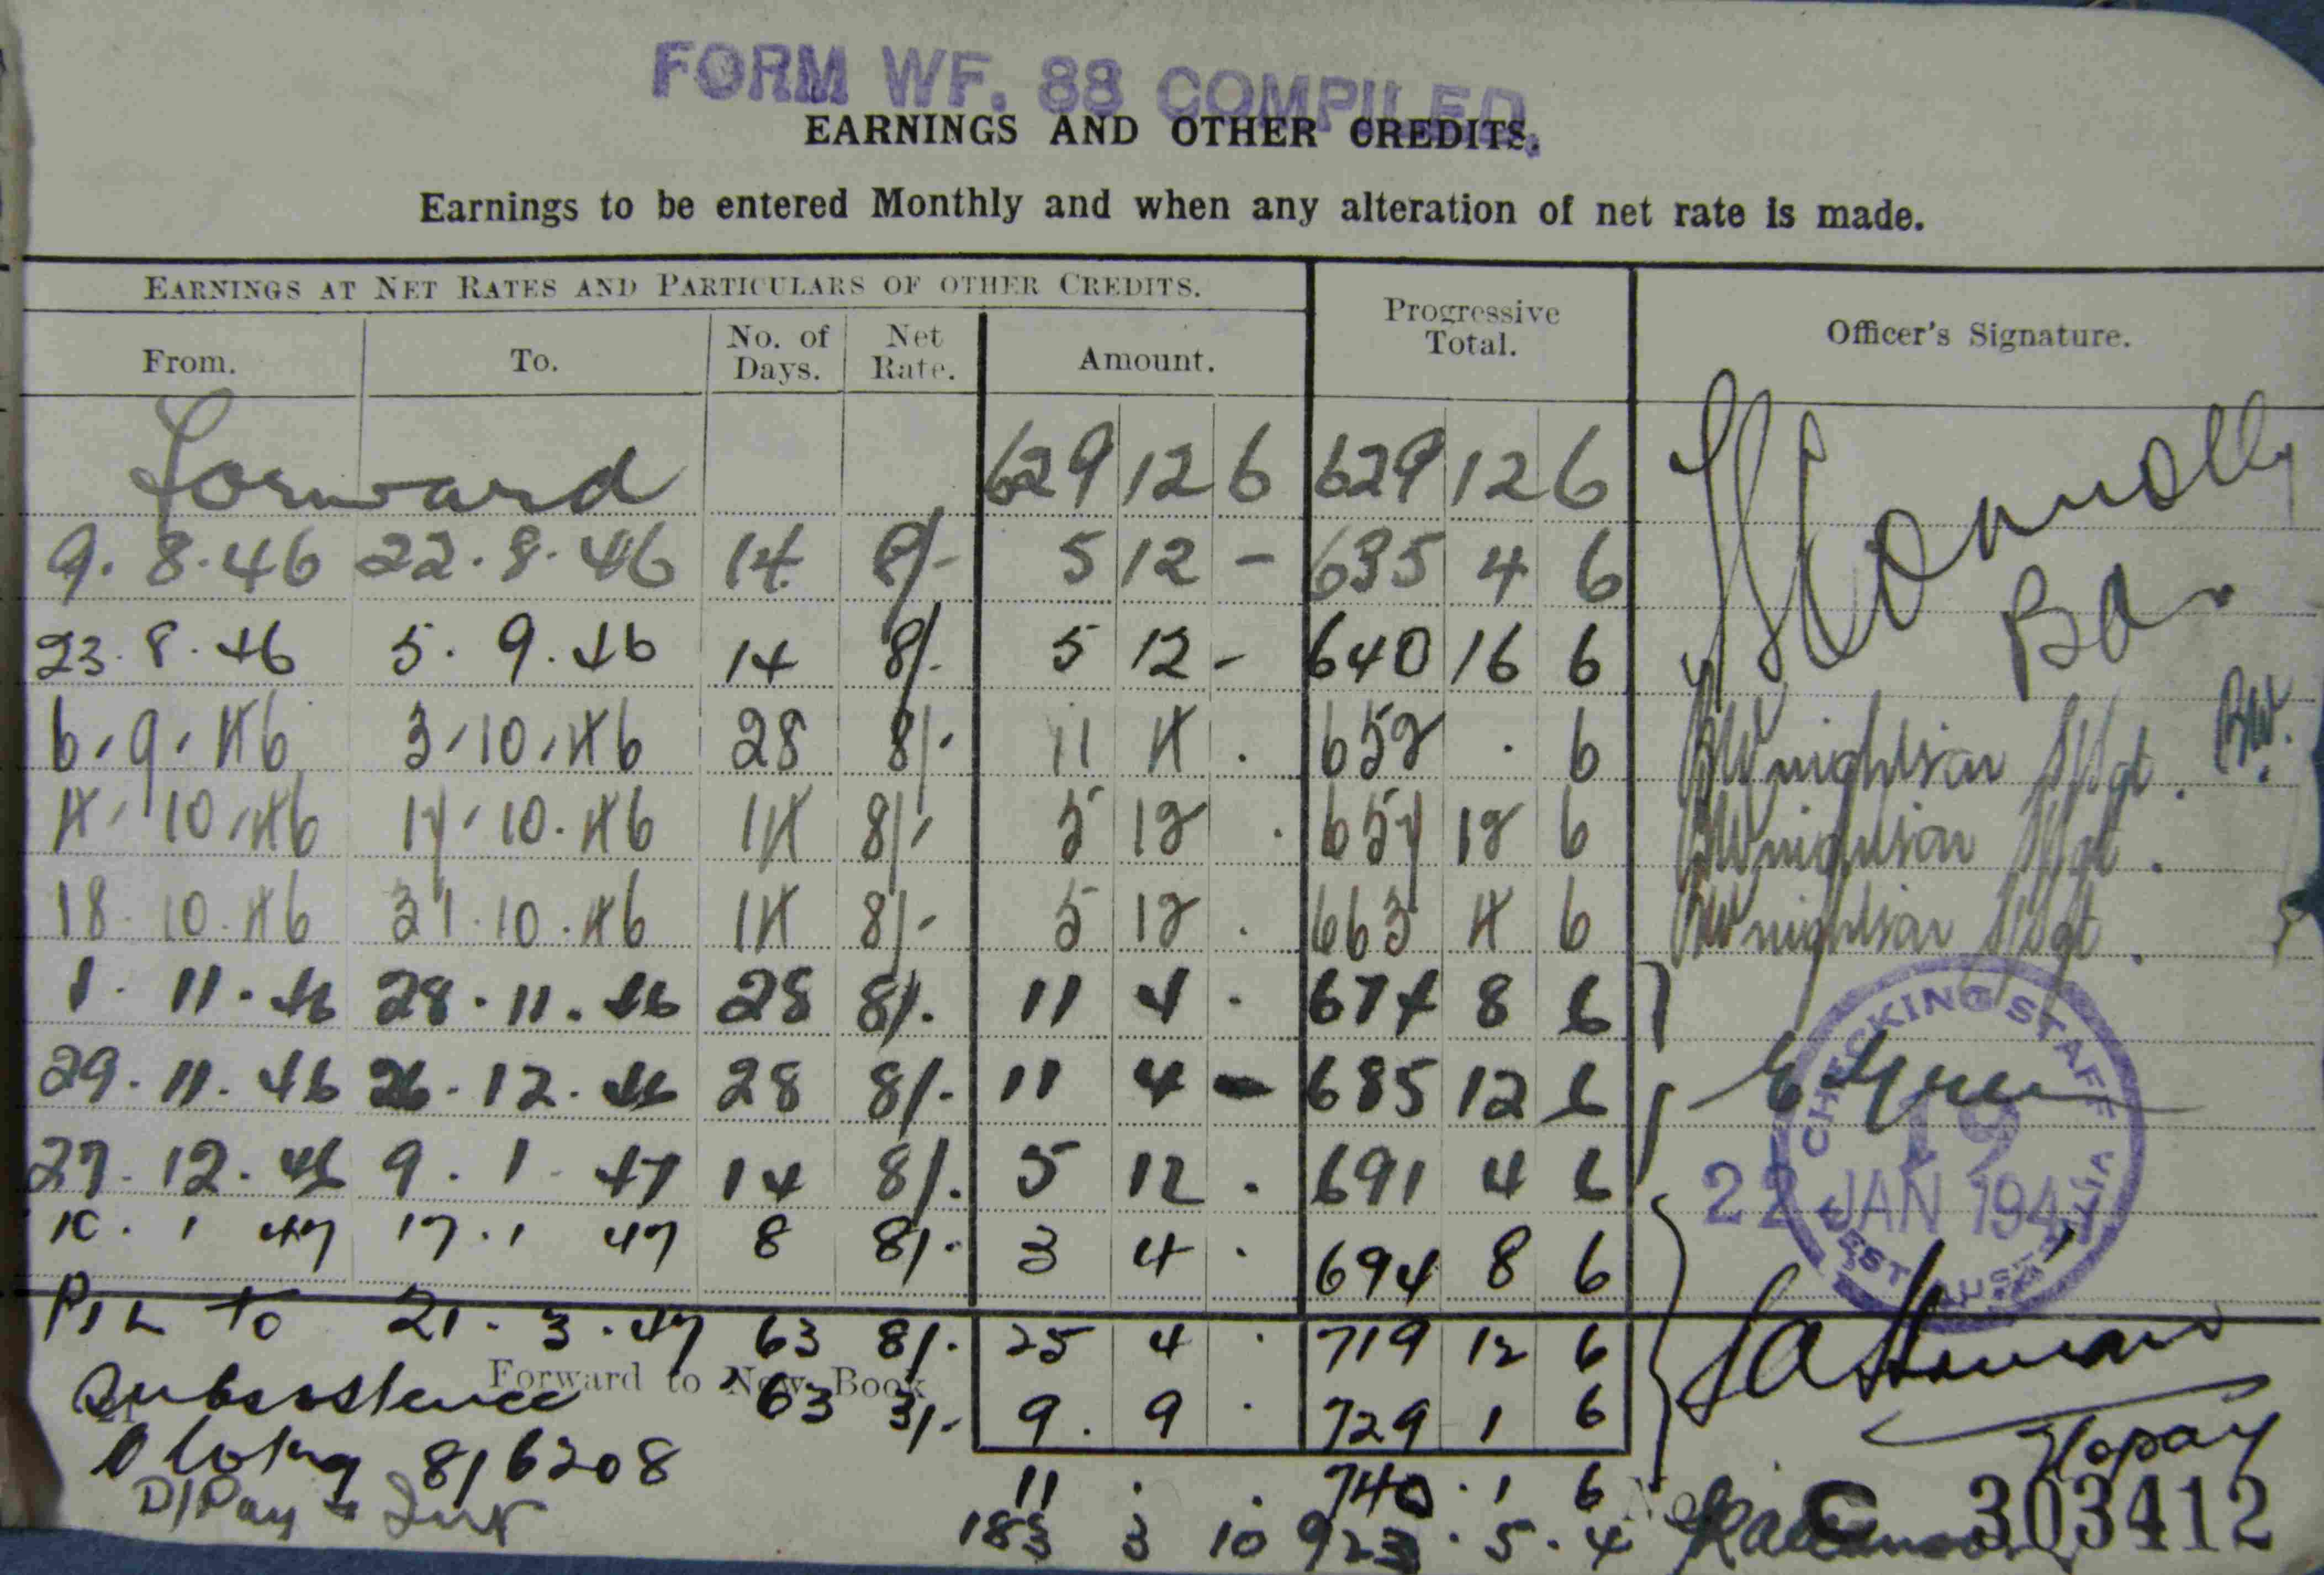 FORM WF. 88 COMPILED.
EARNINGS AND OTHER CREDITS.
Earnings to be entered Monthly and when any alteration of net rate is made.
EARNINGS AT NET RATES AND PARTICULARS OF OTHER CREDITS.
From. To. No. of Days. Net Rate. Amount. Progressive Total. Officer's Signature.
Forward 629 12 6 629 12 6
9.8.46 22.8.46 14 8/- 5 12 - 635 4 6 Connolly
23.8.46 5.9.46 14 8/- 5 12 - 640 16 6
6.9.46 3.10.46 28 8/- 11 4 . 652 . 6 S/Sgt. BW.
4.10.46 17.10.46 14 8/- 5 12 . 657 12 6 S/Sgt.
18.10.46 31.10.46 14 8/- 5 12 . 663 4 6 S/Sgt.
1.11.46 28.11.46 28 8/- 11 4 . 674 8 6
29.11.46 26.12.46 28 8/- 11 4 - 685 12 6
27.12.46 9.1.47 14 8/- 5 12 . 691 4 6
10.1 47 17.1 47 8 8/- 3 4 . 694 8 6
CHECKING STAFF
19
22 JAN 1947
WEST AUSTRALIA
to 21.3.47 63 8/- 25 4 . 719 12 6
Forward to New Book
Subsistence 63 3/- 9. 9 . 729 1 6
8/6208 11 . . 740 . 1 6
D/Pay + 183 3 10 923 . 5 . 4
No. C 303412